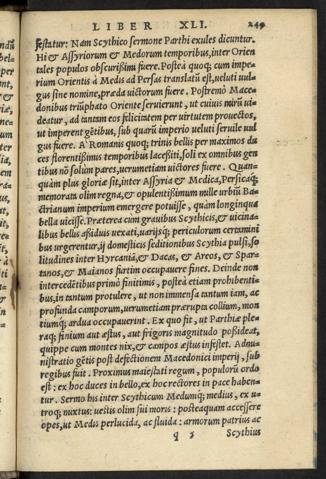 LIBER XLI. 249
festatur: Nam Scythico sermone Parthi exules dicuntur.
Hi & Assyriorum & Medorum temporibus, inter Orien
tales populos obscurissimi fuere. Postea quoq; cum impe
rium Orientis à Medis ad Persas translatū est, veluti uul-
gus sine nomine, præda uictorum fuere. Postremò Mace
donibus triūphato Oriente seruierunt, ut cuiuis mirū ui-
deatur, ad tantam eos felicitatem per uirtutem prouectos,
ut imperent gētibus, sub quarū imperio ueluti seruile uul
gus fuere. A' Romanis quoq; trinis bellis per maximos du
ces florentissimis temporibus lacessiti, soli ex omnibus gen
tibus nō solum pares, uerumetiam uictores fuere. Quan-
quàm plus gloriæ sit, inter Assyria & Medica, Persicaq́;
memorata olim regna, & opulentissimum mille urbiū Ba
ctrianum imperium emergere potuisse, quàm longinqua
bella uicisse. Præterea cum grauibus Scythicis, & uicina-
libus bellis aßiduè uexati, uarijsq́; periculorum certamini
bus urgerentur, ij domesticis seditionibus Scythia pulsi, so
litudines inter Hyrcaniā, & Dacas, & Areos, & Spar-
tanos, & Maianos furtim occupauere fines. Deinde non
intercedētibus primò finitimis, postea etiam prohibenti-
bus, in tantum protulere, ut non immensa tantum iam, ac
profunda camporum, uerumetiam prærupta collium, mon
tiumq́; ardua occupauerint. Ex quo fit, ut Parthiæ ple-
raq; finium aut æstus, aut frigoris magnitudo poßideat,
quippe cum montes nix, & campos æstus infestet. Admi-
nistratio gētis post defectionem Macedonici imperij, sub
regibus fuit. Proximus maiestati regum, populorū ordo
est: ex hoc duces in bello, ex hoc rectores in pace haben-
tur. Sermo his inter Scythicum Medumq́; medius, ex u-
troq; mixtus: uestis olim sui moris: posteaquam accessere
opes, ut Medis perlucida, ac fluida: armorum patrius ac
q 5 Scythius